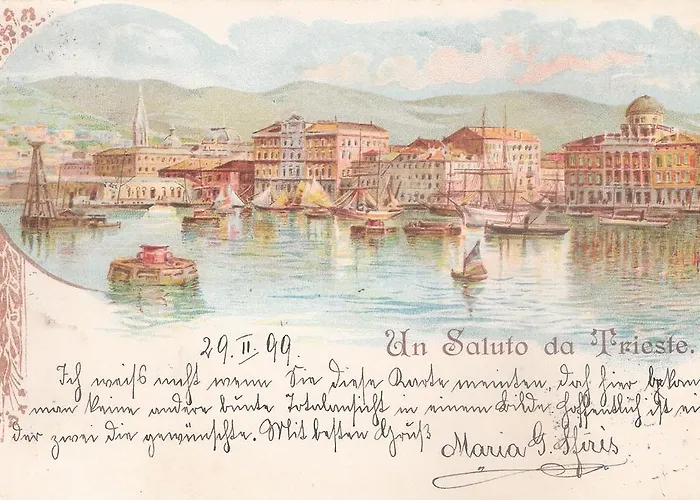 Un Saluto da Trieste.
29. II. 99.
Ich weiß nicht wenn Sie diese Karte meinten, doch hier bekom
man keine andere bunte Totalansicht in einem Bilde. Hoffentlich ist ei
der zwei die gewünschte. Mit besten Gruß
Maria G.